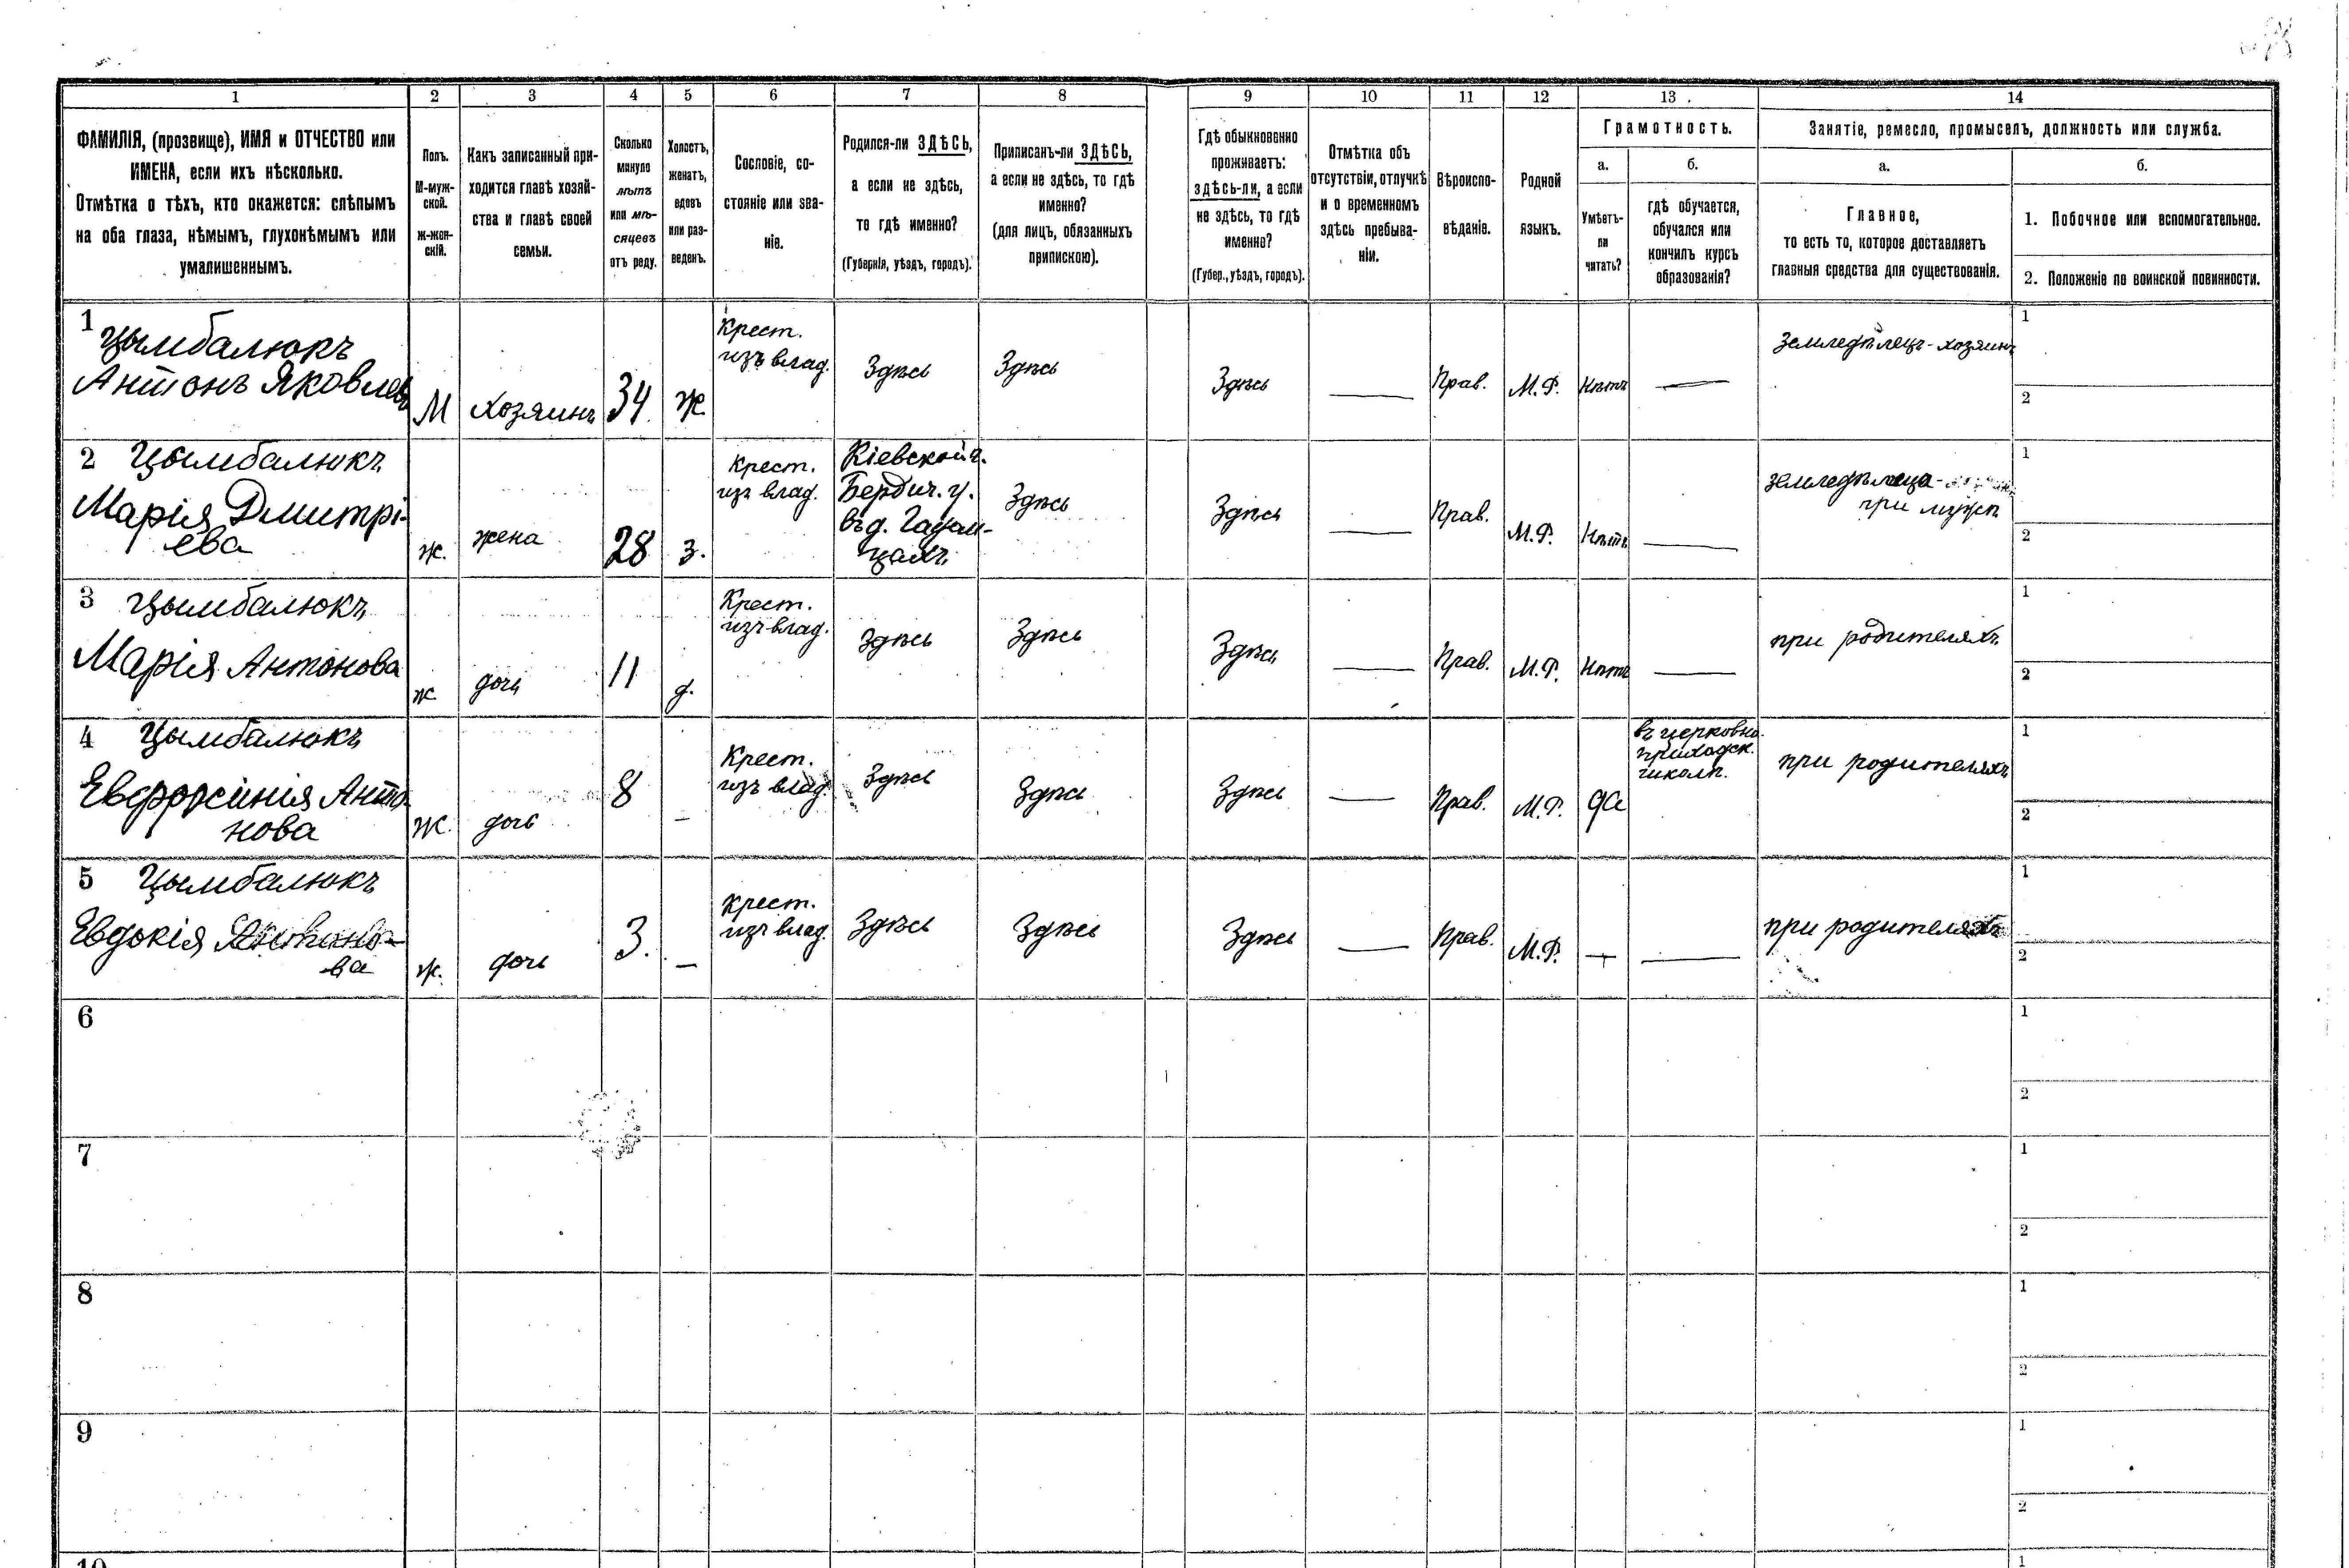 1 2 3 4 5 6 7 8 9 10 11 12 13 14
ФАМИЛІЯ, (прозвище), ИМЯ и ОТЧЕСТВО или
ИМЕНА, если ихъ нѣсколько.
Отмѣтка о тѣхъ, кто окажется: слѣпымъ
на оба глаза, нѣмымъ, глухонѣмымъ или
умалишеннымъ.
Полъ.
М-муж-
ской.
Ж-жен-
скій.
Какъ записанный при-
ходится главѣ хозяй-
ства и главѣ своей
семьи.
Сколько
минуло
лѣтъ
или мѣ-
сяцевъ
отъ роду.
Холостъ,
женатъ,
вдовъ
или раз-
веденъ.
Сословіе, со-
стояніе или зва-
ніе.
Родился-ли ЗДѢСЬ,
а если не здѣсь,
то гдѣ именно?
(Губернія, уѣздъ, городъ).
Приписанъ-ли ЗДѢСЬ,
а если не здѣсь, то гдѣ
именно?
(для лицъ, обязанныхъ
припискою).
Гдѣ обыкновенно
проживаетъ:
здѣсь-ли, а если
не здѣсь, то гдѣ
именно?
(Губер., уѣздъ, городъ).
Отмѣтка объ
отсутствіи, отлучкѣ
и о временномъ
здѣсь пребыва-
ніи.
Вѣроиспо-
вѣданіе.
Родной
языкъ.
Грамотность.
а.
Умѣетъ-
ли
читать?
б.
гдѣ обучается,
обучался или
кончилъ курсъ
образованія?
Занятіе, ремесло, промыселъ, должность или служба.
а.
Главное,
то есть то, которое доставляетъ
главныя средства для существованія.
б.
1. Побочное или вспомогательное.
2. Положеніе по воинской повинности.
1
Цымбалюкъ
Антонъ Яковлевъ
М
хозяинъ
34
ж
Крест.
изъ влад.
Здѣсь
Здѣсь
Здѣсь
—
Прав.
М.Р.
Нѣтъ
—
земледѣлецъ-хозяинъ
1
2
2 Цымбалюкъ
Марія Дмитрі-
ева
ж.
жена
28
з.
Крест.
изъ влад.
Кіевской г.
Бердич. у.
въ д.
Здѣсь
Здѣсь
—
Прав.
М.Р.
Нѣтъ
—
при мужѣ
1
2
3 Цымбалюкъ
Марія Антонова
ж
дочь
11
д.
Крест.
изъ влад.
Здѣсь
Здѣсь
Здѣсь
—
Прав.
М.Р.
Нѣтъ
—
при родителяхъ
1
2
4 Цымбалюкъ
Евфросинія Анто-
нова
Ж.
дочь
8
—
Крест.
изъ влад.
Здѣсь
Здѣсь
Здѣсь
—
Прав.
М.Р.
да
въ церковно-
приходск.
школѣ.
при родителяхъ
1
2
5 Цымбалюкъ
Евдокія Антоно-
ва
ж.
дочь
3.
—
Крест.
изъ влад.
Здѣсь
Здѣсь
Здѣсь
—
Прав.
М.Р.
—
—
при родителяхъ
1
2
6
1
2
7
1
2
8
1
2
9
1
2
10
1